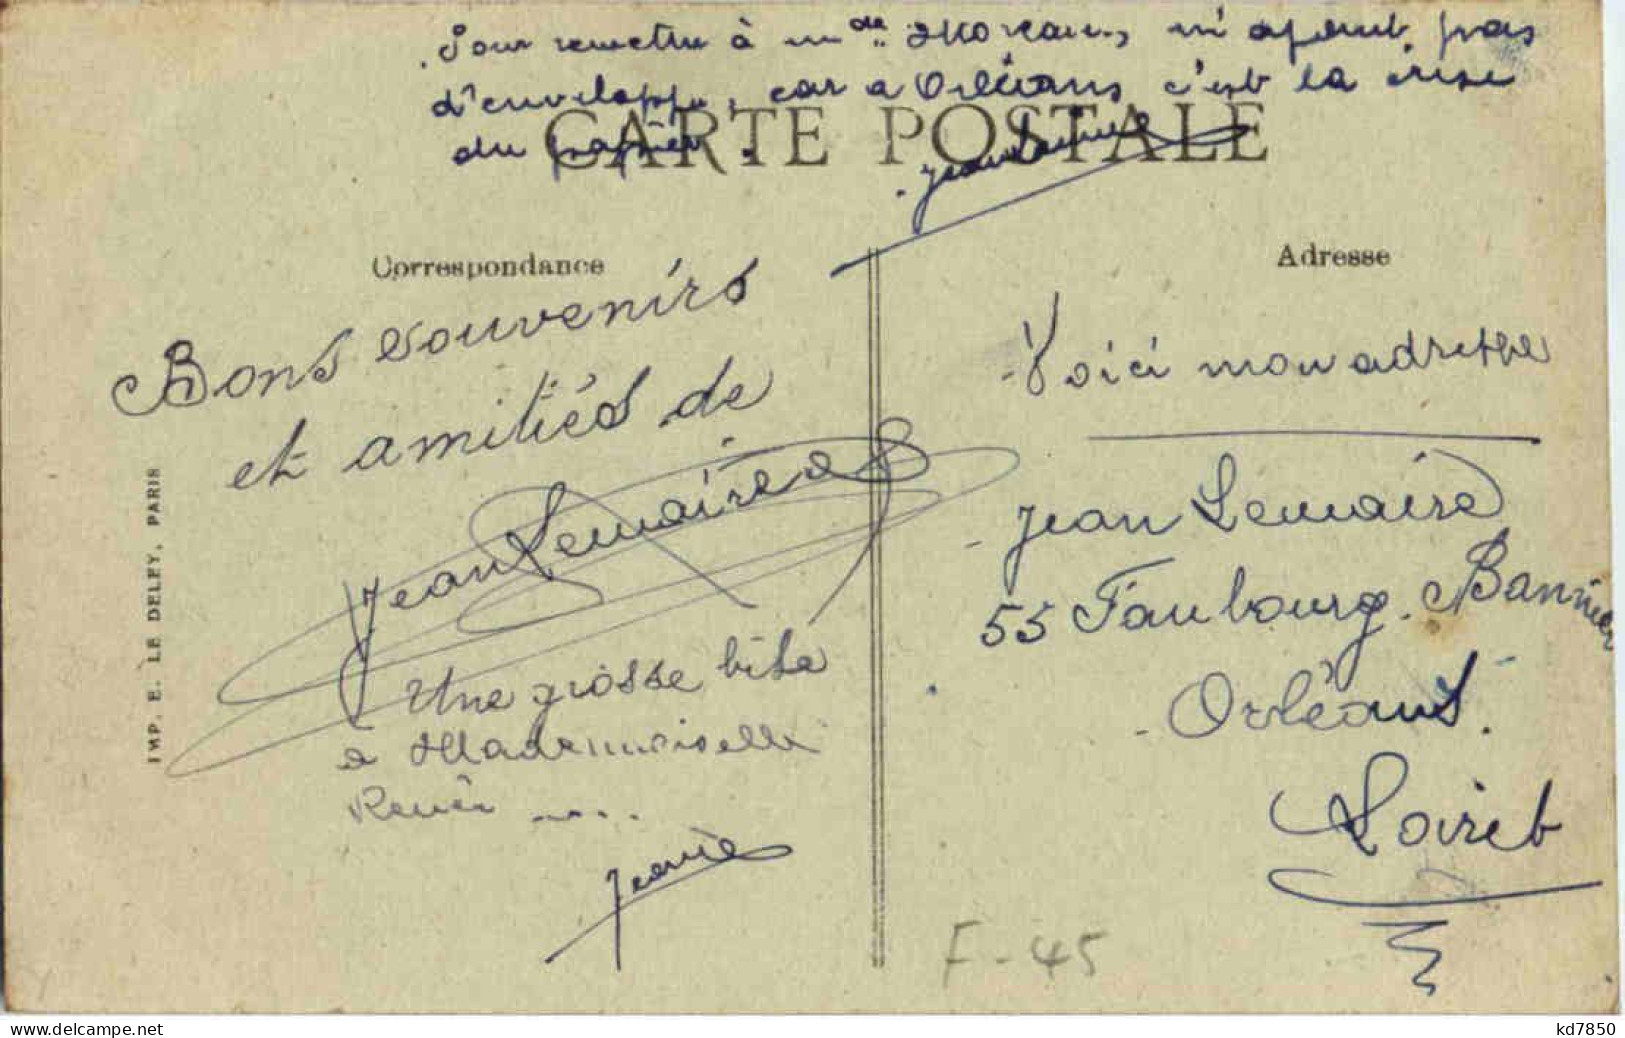 Pour remettre à mde Moreau, n'ayant pas
d'enveloppe, car a Orléans c'est la crise
du papier.
Jean Lemaire
CARTE POSTALE
Correspondance
Bons souvenirs
et amitiés de
Jean Lemaire
Une grosse bise
a Mademoiselle
Renée ....
Jean
IMP. E. LE DELEY, PARIS
Adresse
Voici mon adresse
Jean Lemaire
55 Faubourg. Bannier
Orléans.
Loiret
F-45
kd7850
www.delcampe.net